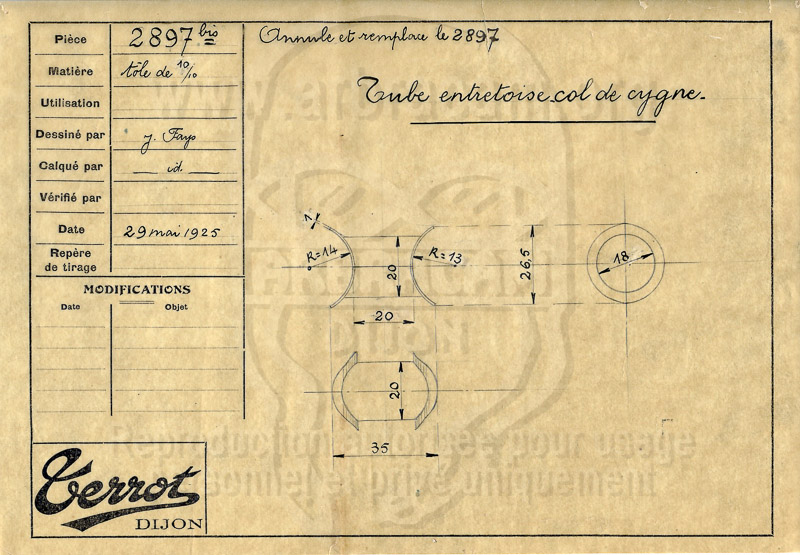 Pièce 2897 bis
Annule et remplace le 2897
Matière tôle de 10/10
Tube entretoise col de cygne.
Utilisation
Dessiné par J. Fays
Calqué par id.
Vérifié par
Date 29 mai 1925
Repère
de tirage
MODIFICATIONS
Date Objet
1
R=14
20
R=13
26,5
18
20
20
35
Terrot
DIJON
DIJON
Reproduction autorisée pour usage
personnel et privé uniquement